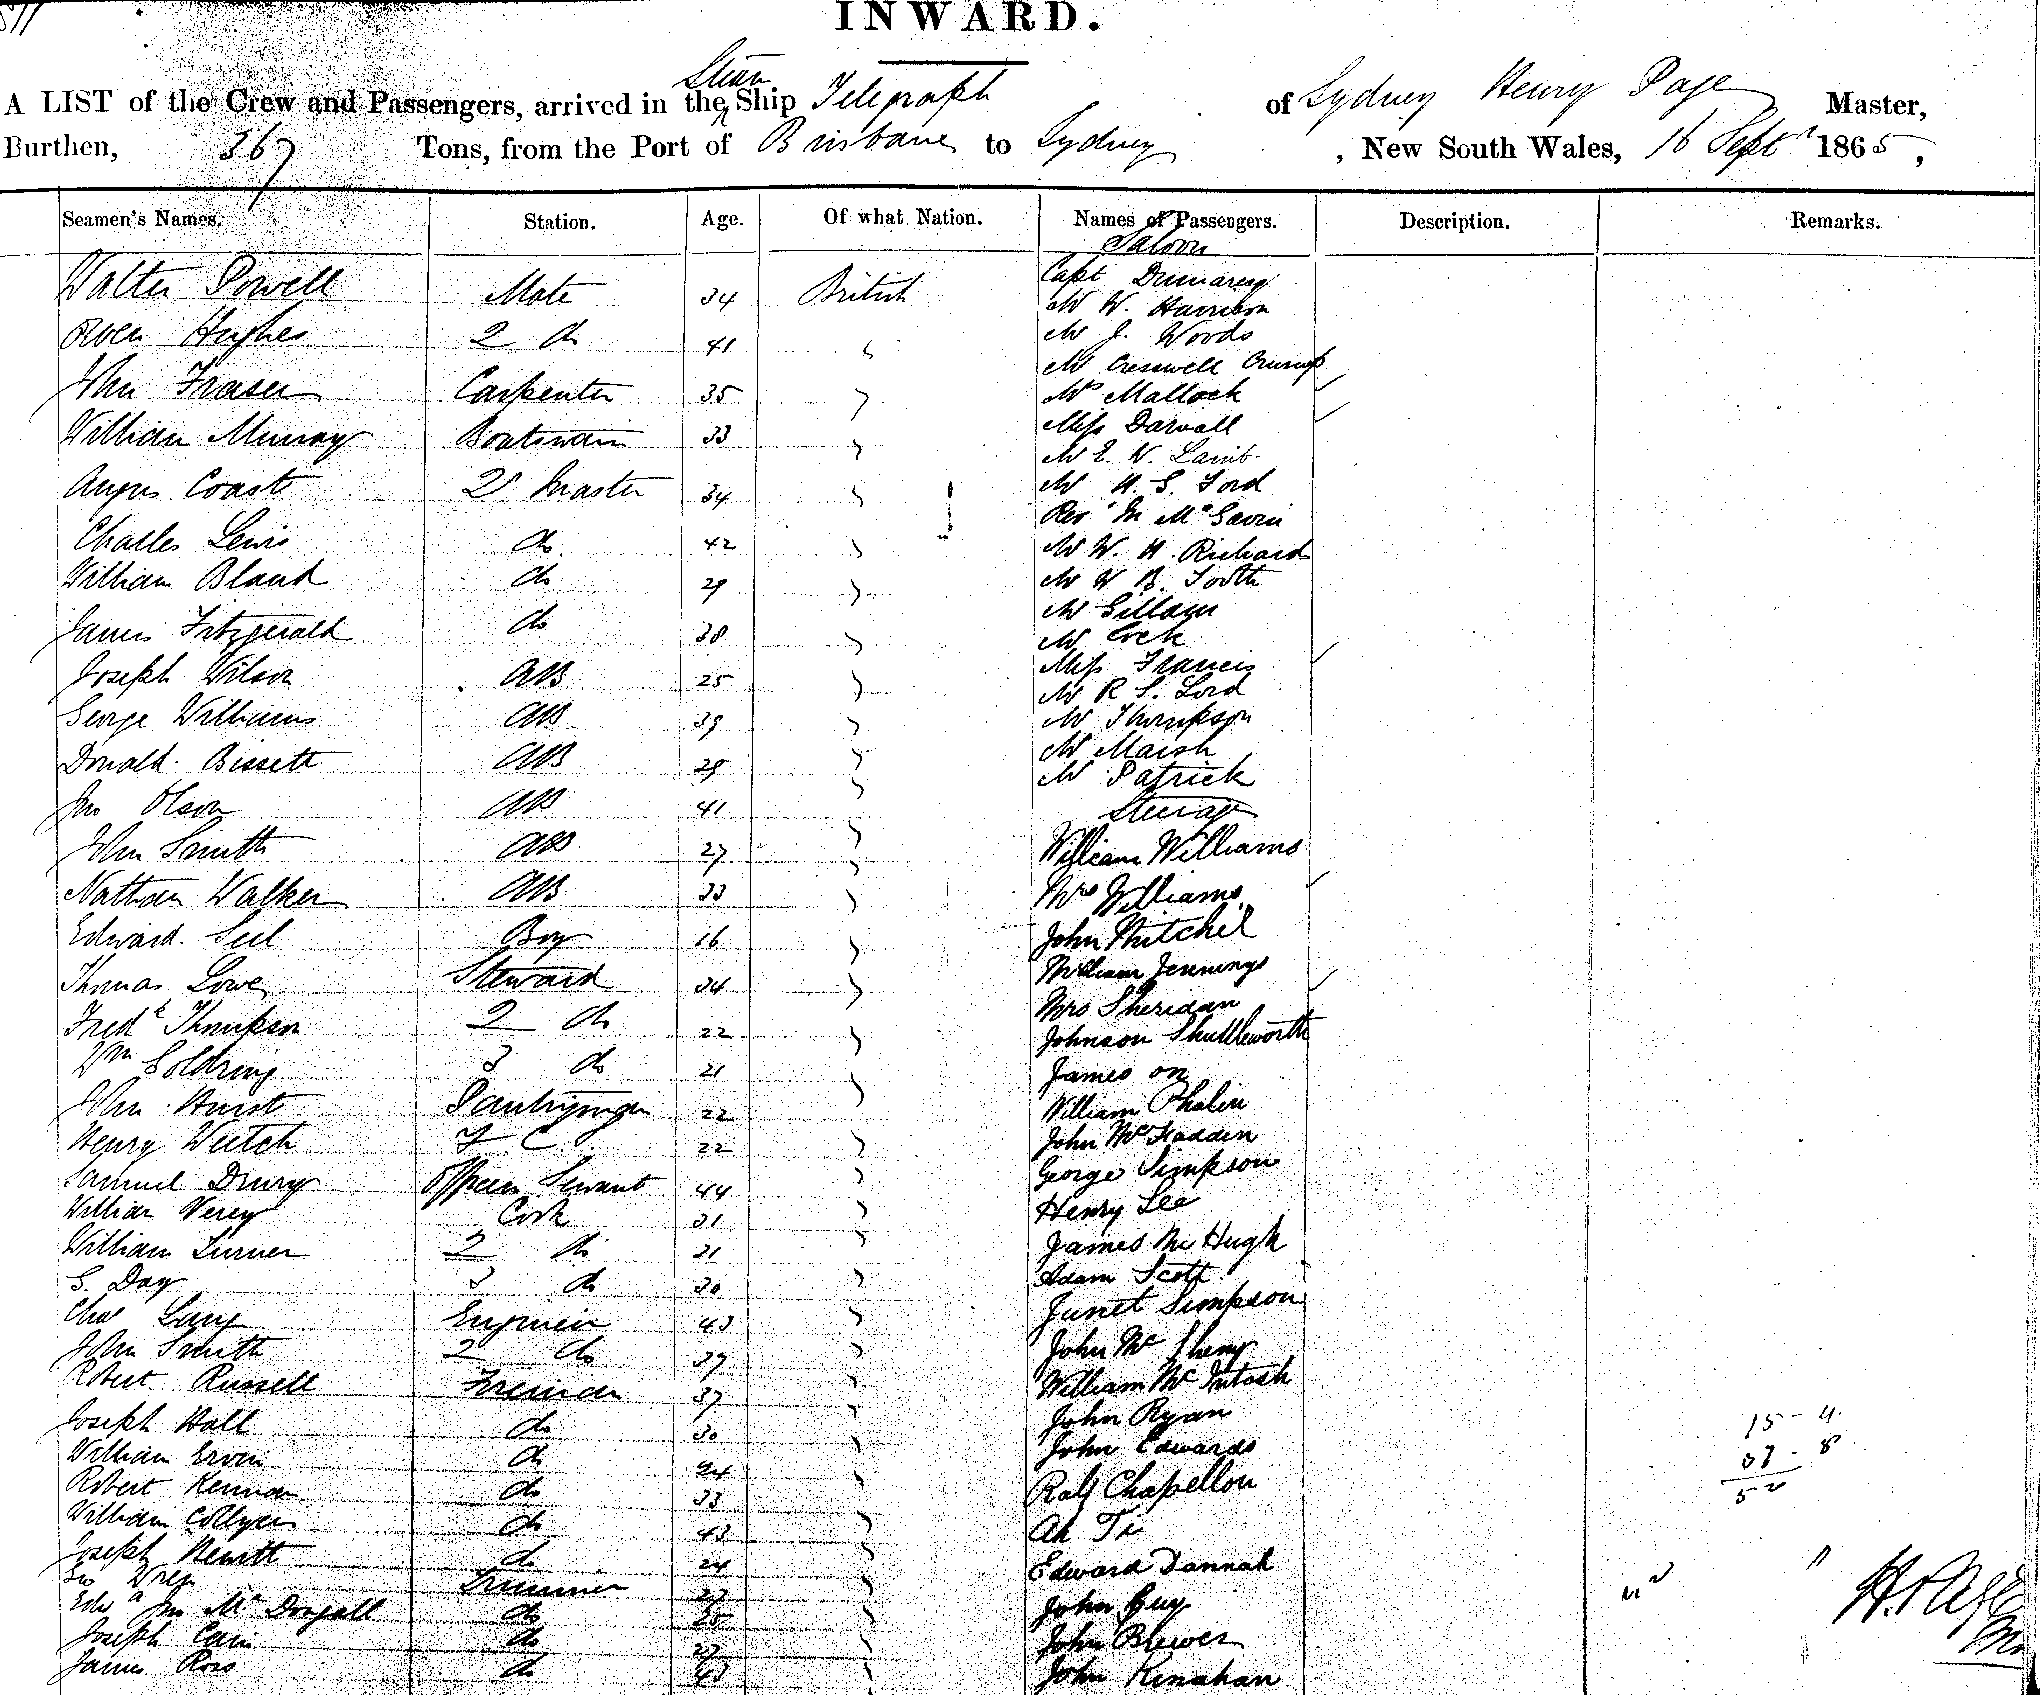 INWARD.
A LIST of the Crew and Passengers, arrived in the Steam Ship Telegraph of Sydney Henry Page Master,
Burthen, 367 Tons, from the Port of Brisbane to Sydney, New South Wales, 16 Sept 1865,
Seamen's Names. Station. Age. Of what Nation. Names of Passengers. Description. Remarks.
Saloon
Walter Powell Mate 34 British Capt
Mr W. Harrison
Hughes 2 do 41 Mr J. Woods
Mr Cresswell Crump
John Fraser Carpenter 35 Mrs Mallock
William Murray Boatswain 33 Miss Darvall
Mr E. W. Lamb
Angus Coast 2r Master 34 Mr H. S. Ford
Revd Mc Gavin
Charles Lewis do 42 Mr W. H. Richard
William Bland do 29 Mr W B. Tooth
Mr Gillam
James Fitzgerald do 38 Mr Cock
Miss Francis
Joseph Wilson AB 25 Mr R S. Lord
George Williams AB 39 Mr Thompson
Mr Marsh
Donald Bissett AB 29 Mr Patrick
Jno Olson AB 41 Steerage
John Smith AB 27 William Williams
Nathan Walker AB 33 Mrs Williams
Edward Seel Boy 16 John Mitchel
Thomas Lowe Steward 34 William Jennings
Mrs Sheridan
Fredk Thompson 2 do 22 Johnson Shuttleworth
Wm Goldring 3 do 21 James on
John Hurst Pantryman 22 William Phalen
Henry Veitch F C 22 John McFadden
Samuel Drury Officers Servant 44 George Simpson
William Verey Cook 31 Henry Lee
William Turner 2 do 21 James McHugh
S. Day 3 do 30 Adam Scott
Chas Lang Engineer 43 Junet Simpson
John Smith 2 do 39 John Mc
Robert Russell Fireman 37 William McIntosh
Joseph Hall do 30 John Ryan 15 - 4
William Ervin do 24 John Edwards 37 - 8
Robert Kennan do 33 Ralf Chapellou 52
William Collyer do 43 Ah
Joseph Hewitt do 24 Edward Dannah
Geo Trimmer 23 John Guy H. Page
Jno McDougall do 25
Joseph Cain do 27 John Brewer
James Ross do 43 John Kinahan